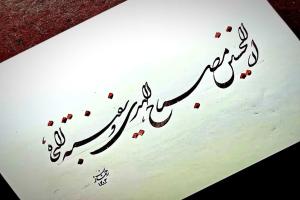 ان الحسین مصباح الهدی و سفینة النجاة